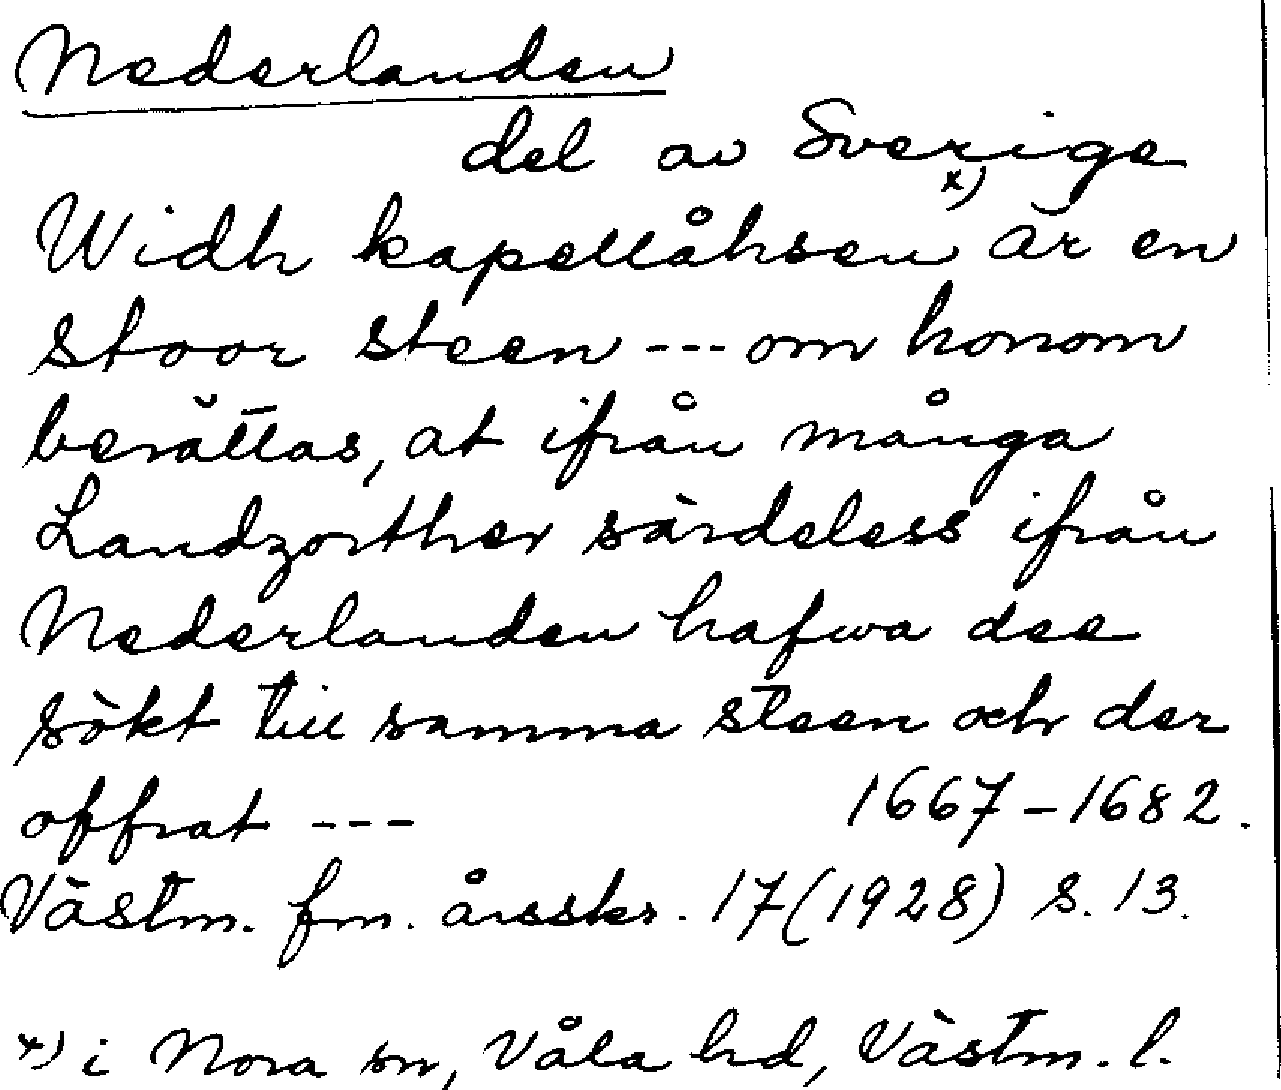 Nederlanden
del av Sverige
Widh kapellåhsen x) är en
stoor steen --- om honom
berättas, at ifrån många
Landzorther särdeless ifrån
Nederlanden hafwa dee
sökt till samma steen och der
offrat --- 1667-1682.
Västm. fm. årsskr. 17 (1928) s. 13.
x) i Nora sn, Våla hd, Västm. l.